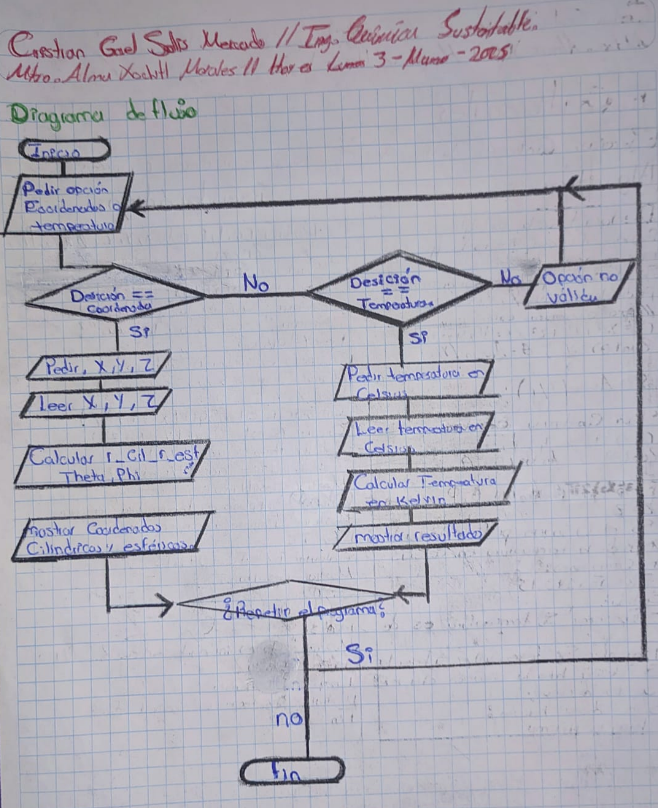 Cristian Gael Solis Mercado // Ing. Química Sustentable.
Mtro. Alma Xochitl Morales // 3-Marzo-2025
Diagrama de flujo
Inicio
Pedir opción
Coordenadas o
temperatura
Desición ==
Coordenada
No
Desición
==
Temperatura
No
Opción no
válida
Si
Si
Pedir, X, Y, Z
Leer X, Y, Z
Calcular r_Cil_r_esf
Theta, Phi
mostrar Coordenadas
Cilíndricas y esféricas
Pedir temperatura en
Celsius
Leer temperatura en
Celsius
Calcular Temperatura
en Kelvin
mostrar resultado
¿Repetir el programa?
Si
no
fin